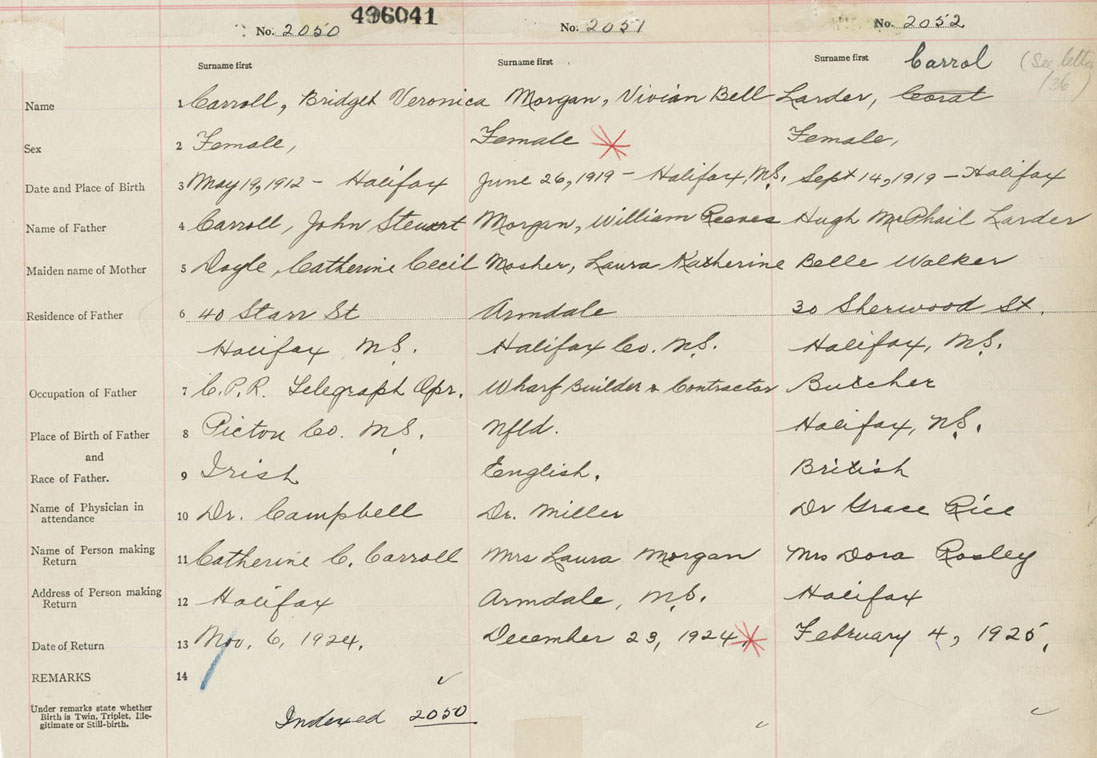 496041
No. 2050 No. 2051 No. 2052
Surname first Surname first Surname first Carrol (See letter /36)
Name 1 Carroll, Bridget Veronica Morgan, Vivian Bell Larder, Coral
Sex 2 Female, Female Female,
Date and Place of Birth 3 May 19, 1912 - Halifax June 26, 1919 - Halifax, N.S. Sept 14, 1919 - Halifax
Name of Father 4 Carroll, John Stewart Morgan, William Reeves Hugh McPhail Larder
Maiden name of Mother 5 Doyle, Catherine Cecil Mosher, Laura Katherine Belle Walker
Residence of Father 6 40 Starr St Armdale 30 Sherwood St.
Halifax N.S. Halifax Co. N.S. Halifax, N.S.
Occupation of Father 7 C.P.R. Telegraph Opr. Wharf Builder & Contractor Butcher
Place of Birth of Father 8 Picton Co. N.S. Nfld. Halifax, N.S.
and
Race of Father. 9 Irish English. British
Name of Physician in
attendance 10 Dr. Campbell Dr. Miller Dr Grace Rice
Name of Person making
Return 11 Catherine C. Carroll Mrs Laura Morgan Mrs Dora Rosley
Address of Person making
Return 12 Halifax Armdale, N.S. Halifax
Date of Return 13 Nov. 6, 1924. December 23, 1924. February 4, 1925.
REMARKS 14
Under remarks state whether
Birth is Twin, Triplet, Ille-
gitimate or Still-birth.
Indexed 2050